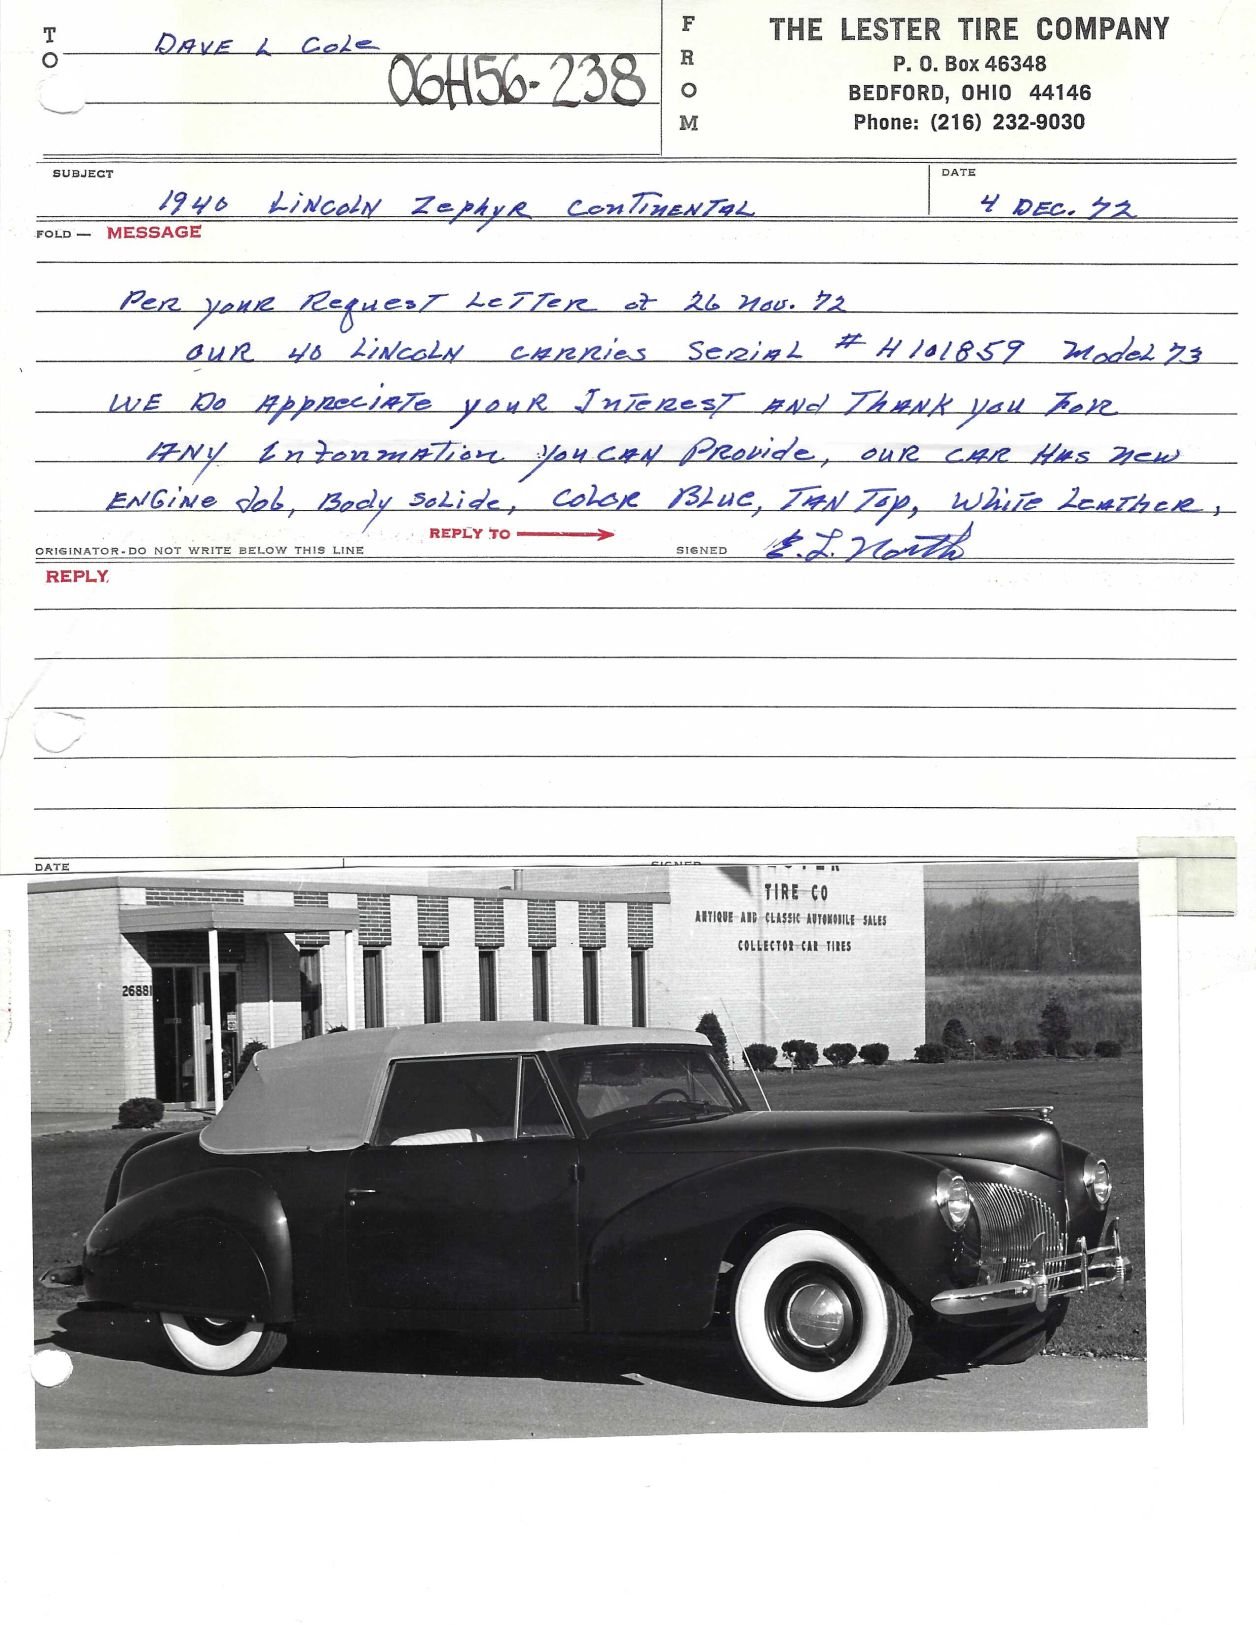 TO
DAVE L COLE
06H56-238
FROM
THE LESTER TIRE COMPANY
P. O. Box 46348
BEDFORD, OHIO 44146
Phone: (216) 232-9030
SUBJECT
1940 LINCOLN ZEPHYR CONTINENTAL
DATE
4 DEC. 72
FOLD — MESSAGE
PER YOUR REQUEST LETTER OF 26 NOV. 72
OUR 40 LINCOLN CARRIES SERIAL # H101859 MODEL 73
WE DO APPRECIATE YOUR INTEREST AND THANK YOU FOR
ANY INFORMATION YOU CAN PROVIDE, OUR CAR HAS NEW
ENGINE JOB, BODY SOLIDE, COLOR BLUE, TAN TOP, WHITE LEATHER,
REPLY TO
ORIGINATOR-DO NOT WRITE BELOW THIS LINE
SIGNED E. L. North
REPLY
DATE
SIGNED
TIRE CO
ANTIQUE AND CLASSIC AUTOMOBILE SALES
COLLECTOR CAR TIRES
26881